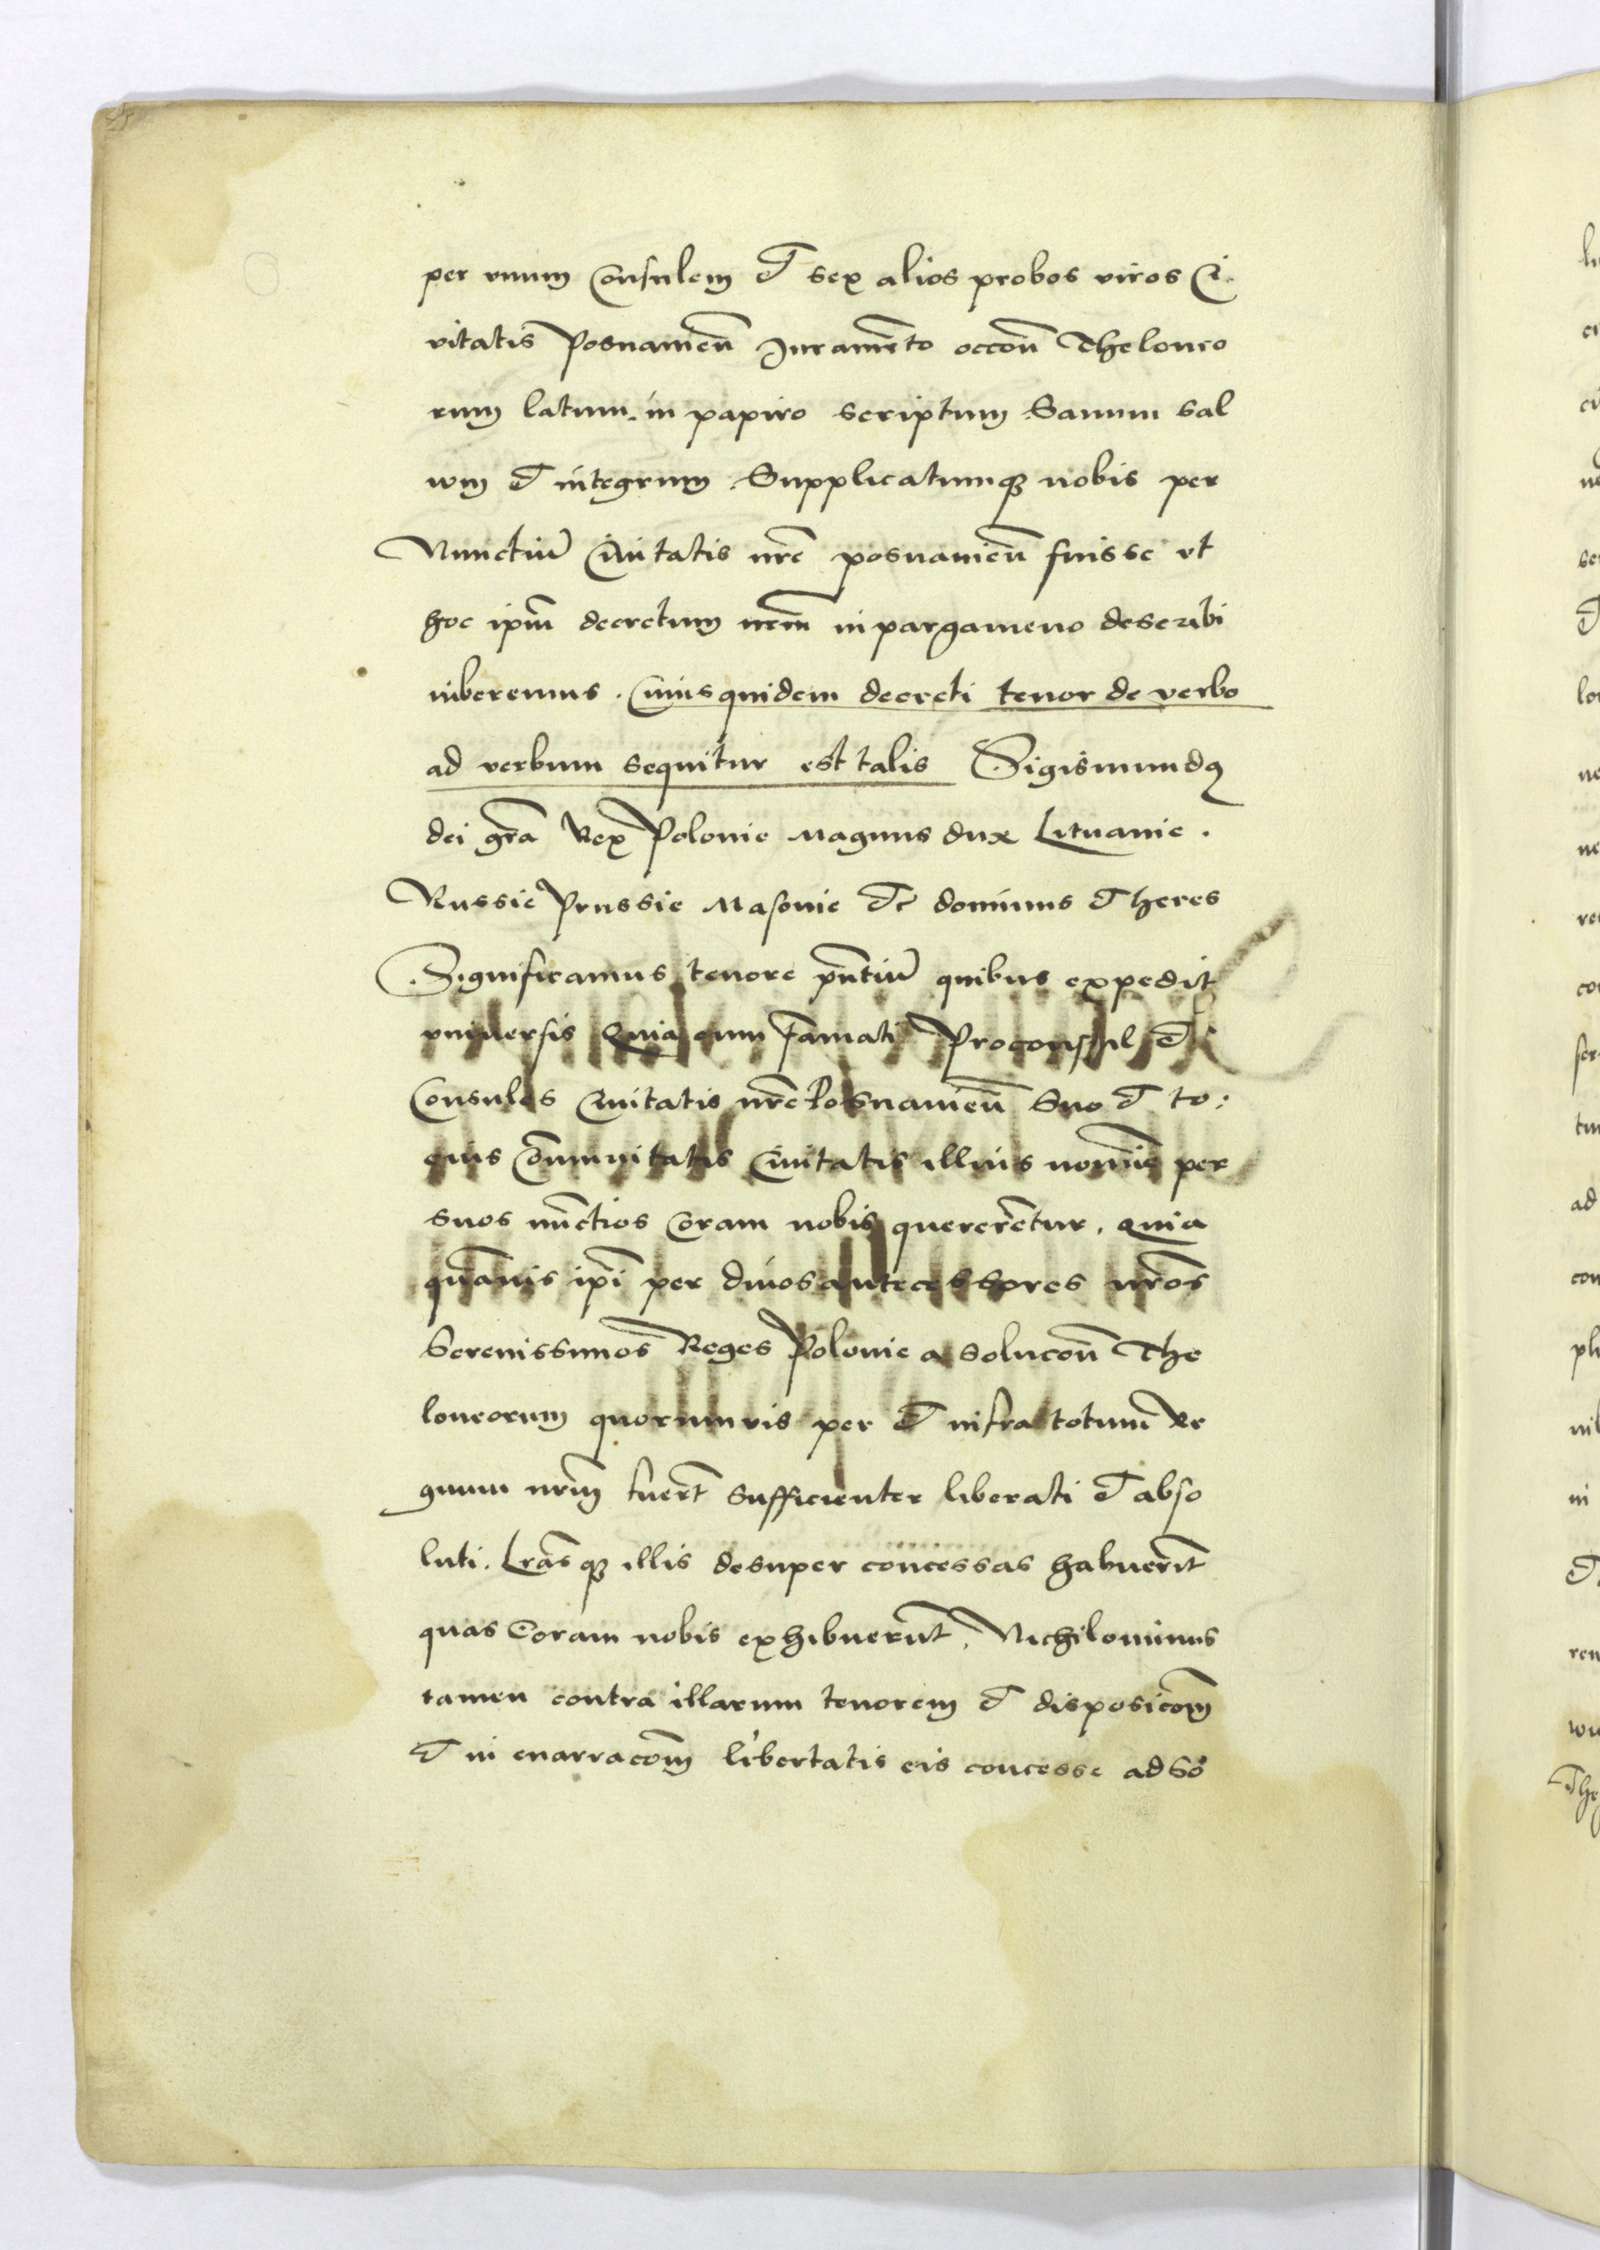 per vnum Consulem et sex alios probos viros Ci-
vitatis Posnanien̄ Iuramēto occōn Theloneo
rum latum in papiro scriptum Sanum sal
wm et integrum Supplicatumq3 nobis per
Nunctiū Ciuitatis nr̄e posnanien̄ fuisse vt
hoc ipm̄ decretum nr̄m in pargameno describi
iuberemus. Cuiusquidem decreti tenor de verbo
ad verbum sequitur est talis Sigismundꝰ
dei gr̄a Rex Polonie Magnus dux Lituanie.
Russie Prussie Masouie etc̄ dominus et heres
Significamus tenore pn̄tiū quibus expedit
vniuersis Quia cum famati Proconsul et
Consules Ciuitatis nr̄e Posnanien̄ Suo et to:
cius Cōmunitatis Ciuitatis illius nomīe per
suos nūctios Coram nobis quererētur. Quia
quāuis ipī per diuos antecessores nr̄os
Serenissimos Reges Polonie a solucōn The
loneorum quorumuis per et infra totum Re
gnum nr̄m fuert̄ sufficienter liberati et abso
luti. Lrās q3 illis desuper concessas habuerīt
quas Coram nobis exhibuerūt. Nichilominus
tamen contra illarum tenorem et disposicōm
et in enarracōm libertatis eis concesse ad So